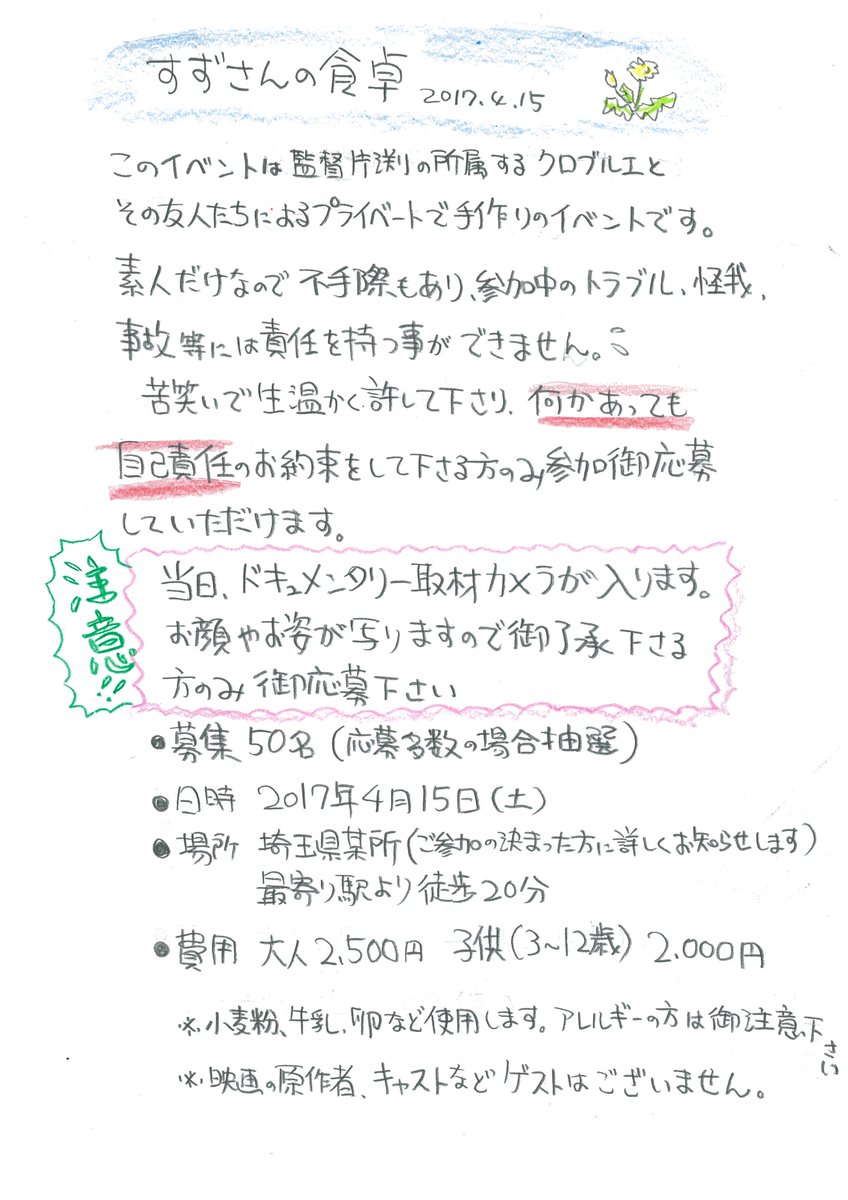 すずさんの食卓 2017.4.15
このイベントは監督片渕の所属するクロブルエと
その友人たちによるプライベートで手作りのイベントです。
素人だけなので不手際もあり、参加中のトラブル、怪我、
事故等には責任を持つ事ができません。
苦笑いで生温かく許して下さり、何かあっても
自己責任のお約束をして下さる方のみ参加御応募
していただけます。
注意!!
当日、ドキュメンタリー取材カメラが入ります。
お顔やお姿が写りますので御了承下さる
方のみ御応募下さい
●募集 50名(応募多数の場合抽選)
●日時 2017年4月15日(土)
●場所 埼玉県某所(ご参加の決まった方に詳しくお知らせします)
最寄り駅より徒歩20分
●費用 大人2,500円 子供(3~12歳) 2.000円
※小麦粉、牛乳、卵など使用します。アレルギーの方は御注意下さい
※映画の原作者、キャストなどゲストはございません。